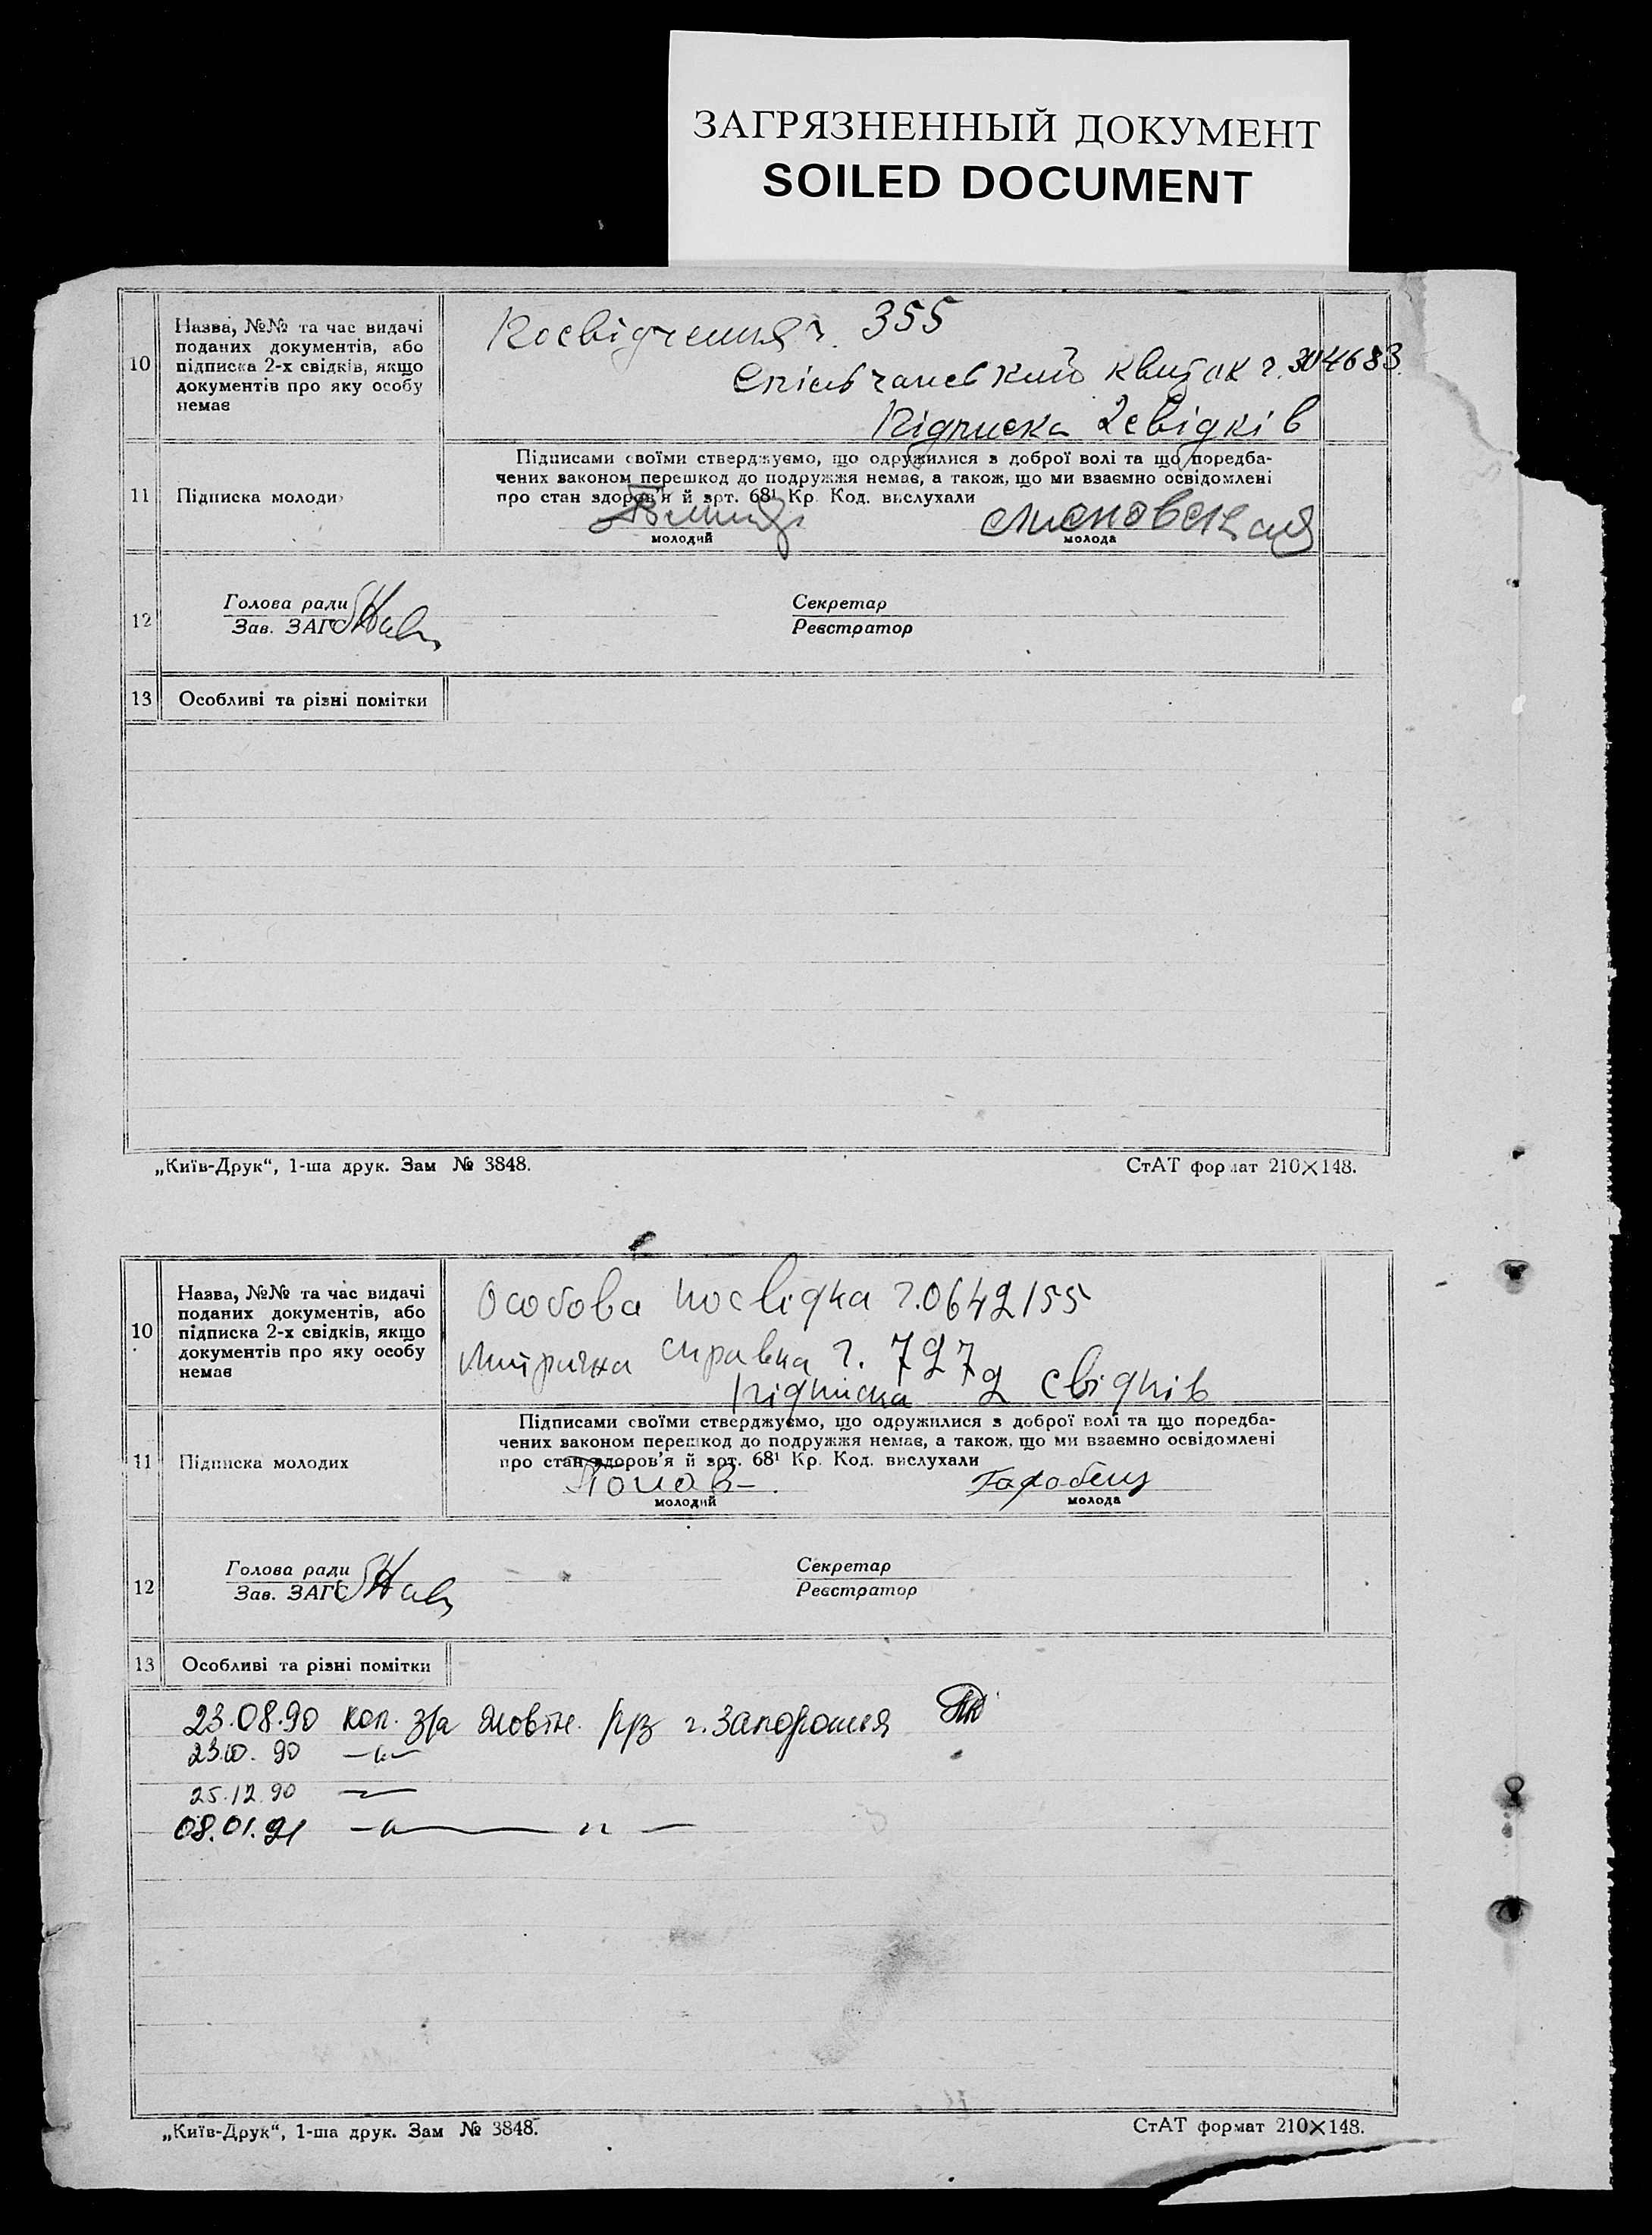 ЗАГРЯЗНЕННЫЙ ДОКУМЕНТ
SOILED DOCUMENT
10
Назва, №№ та час видачі
поданих документів, або
підписка 2-х свідків, якщо
документів про яку особу
немає
Посвідчення ч. 355
Спілчанський квиток ч. 304683.
Підписка 2 свідків
11
Підписка молоди
Підписами своїми стверджуємо, що одружилися з доброї волі та що поредба-
чених законом перешкод до подружжя немає, а також, що ми взаємно освідомлені
про стан здоров'я й арт. 68¹ Кр. Код. вислухали
молодий
молода
12
Голова ради
Зав. ЗАГС
Секретар
Реєстратор
13
Особливі та різні помітки
„Київ-Друк“, 1-ша друк. Зам № 3848.
СтАТ формат 210×148.
10
Назва, №№ та час видачі
поданих документів, або
підписка 2-х свідків, якщо
документів про яку особу
немає
Особова посвідка ч. 0642155
Митрична справка ч. 727
підписка 2 свідків
11
Підписка молодих
Підписами своїми стверджуємо, що одружилися з доброї волі та що поредба-
чених законом перешкод до подружжя немає, а також, що ми взаємно освідомлені
про стан здоров'я й арт. 68¹ Кр. Код. вислухали
молодий
молода
12
Голова ради
Зав. ЗАГС
Секретар
Реєстратор
13
Особливі та різні помітки
23.08.90 коп. з/а Жовтн. р/з г. Запорожья
23.10.90 —"—
25.12.90 —
08.01.91 —"— " —
„Київ-Друк“, 1-ша друк. Зам № 3848.
СтАТ формат 210×148.